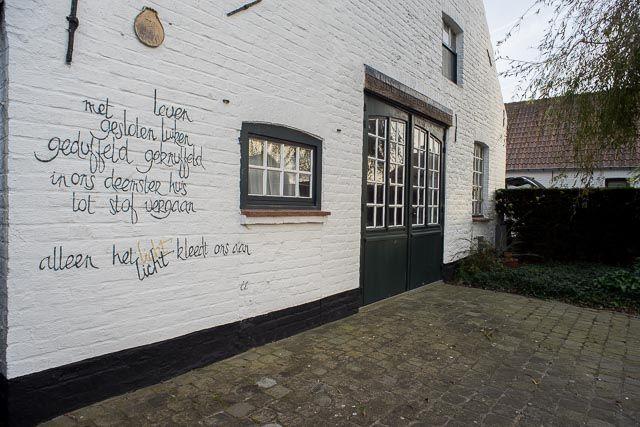 leven
met gesloten luiken
geduffeld geknuffeld
in ons deemster huis
tot stof vergaan
alleen het licht licht kleedt ons aan